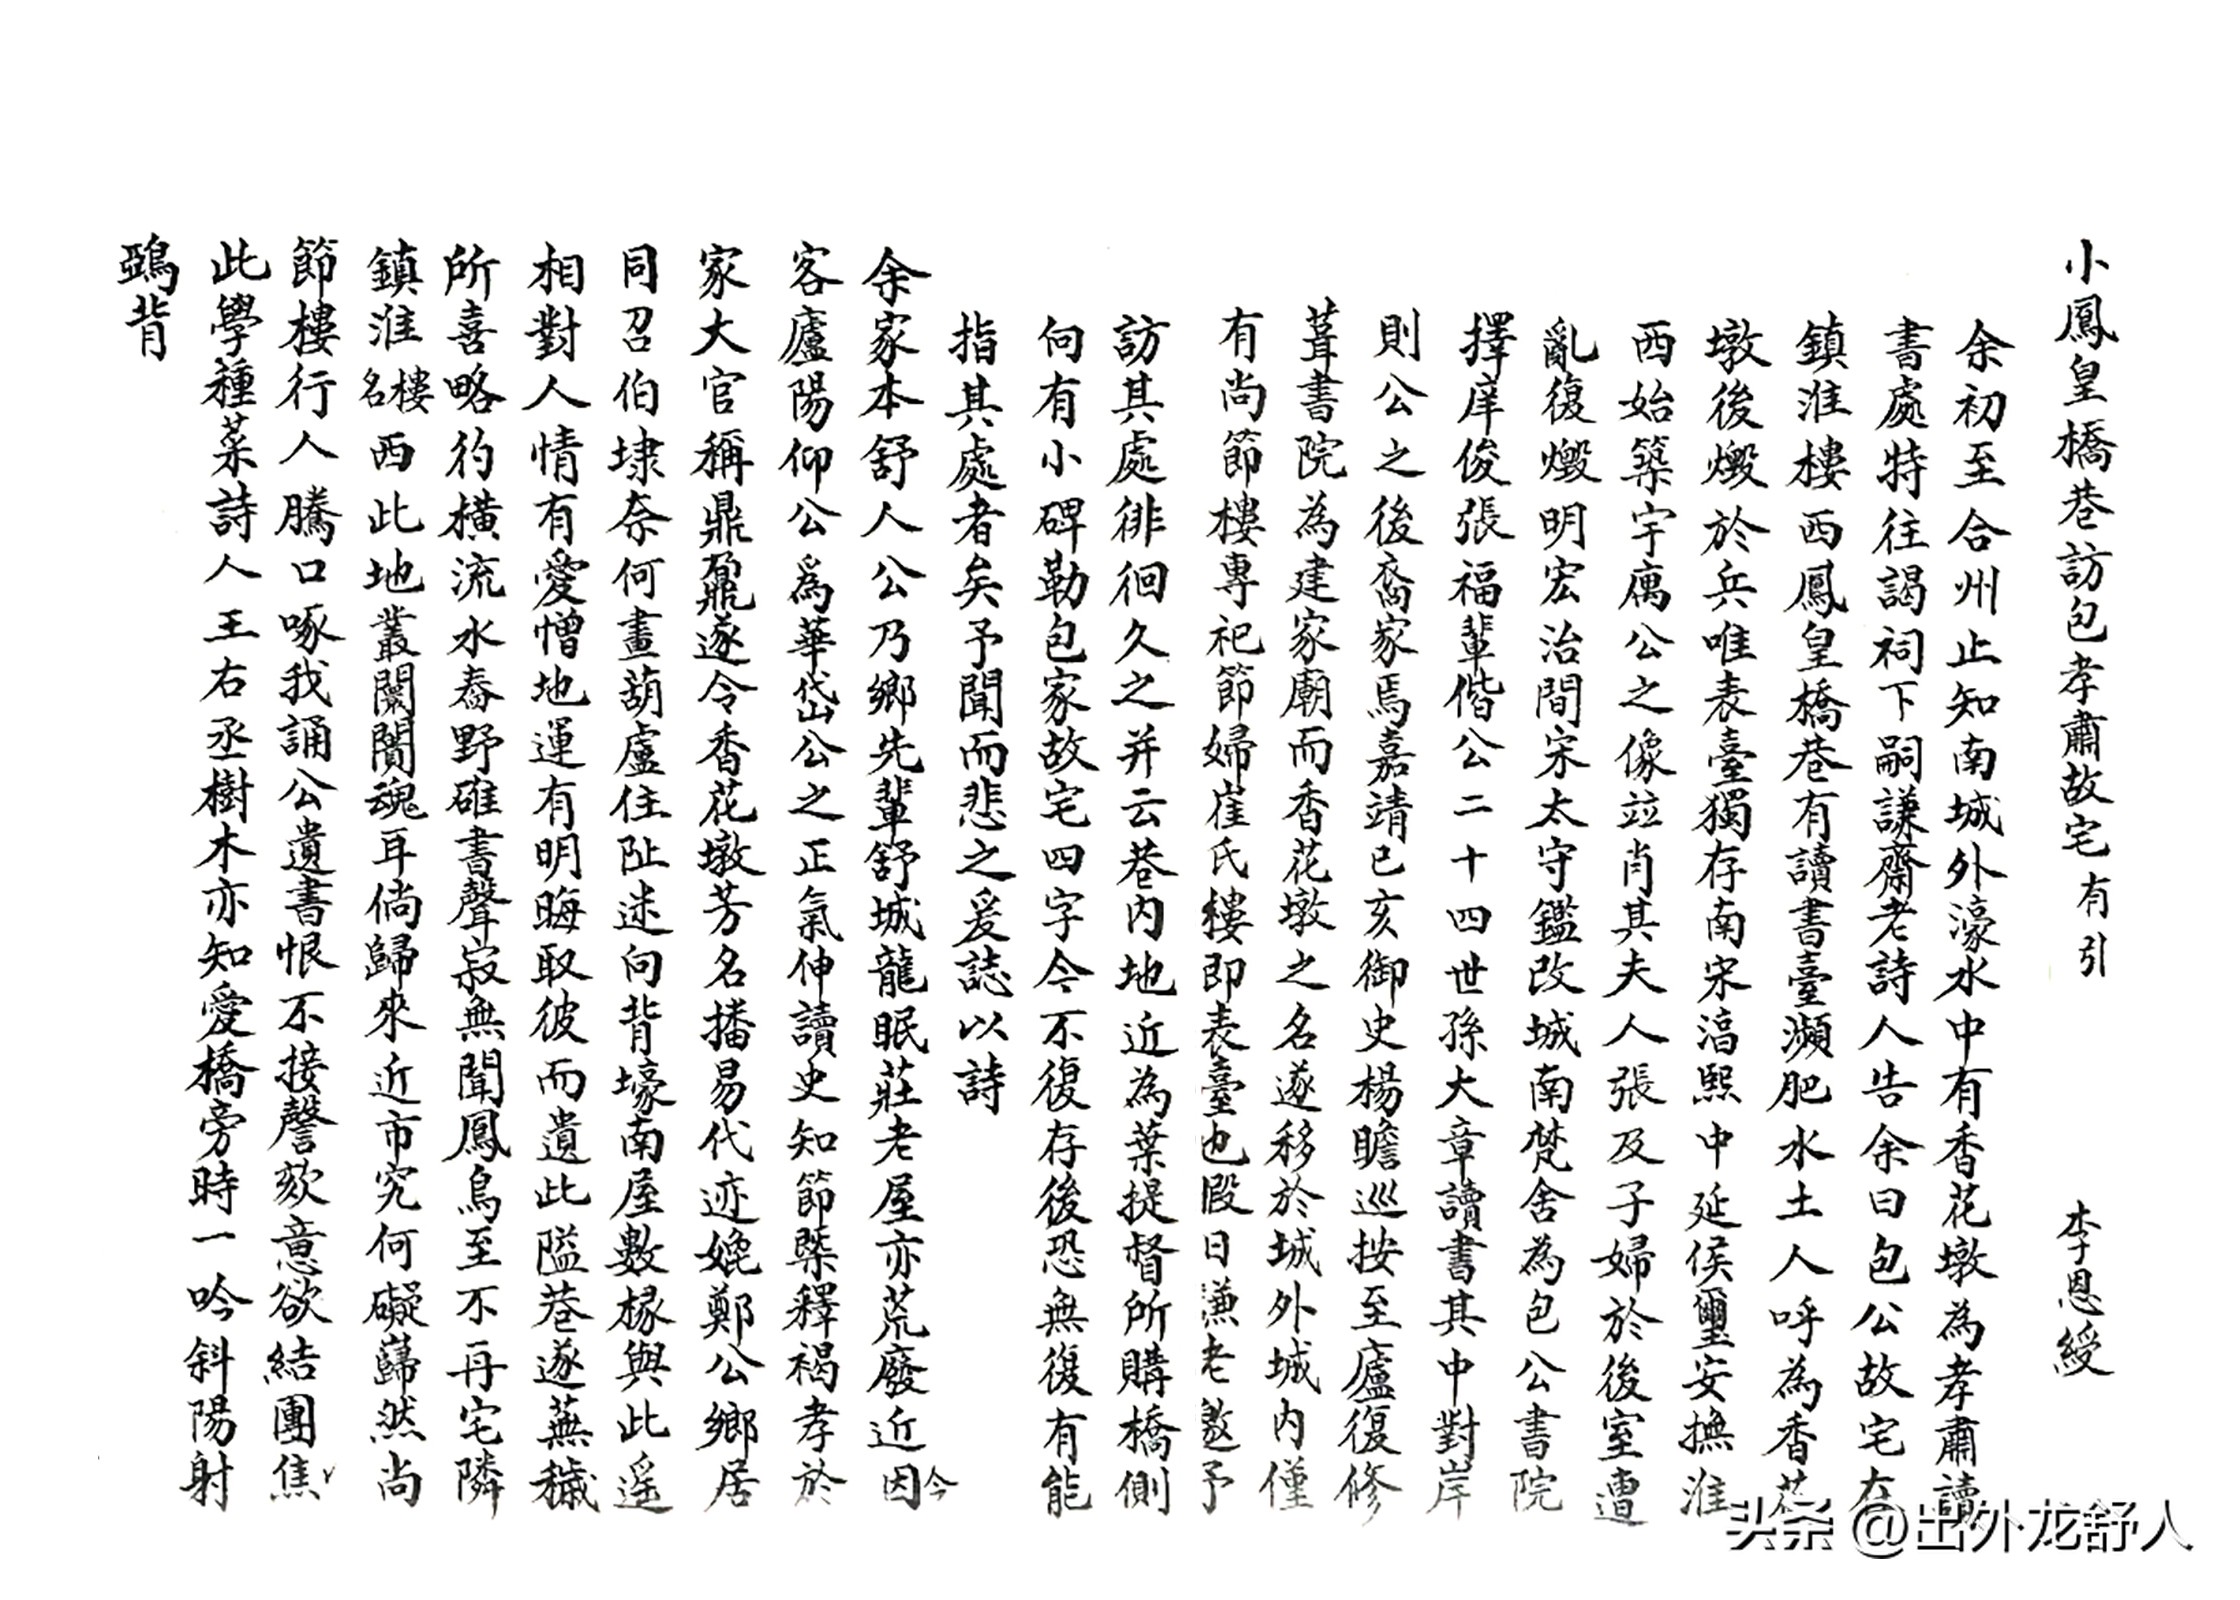 小鳳皇橋巷訪包孝肅故宅有引 李恩綬
余初至合州止知南城外濠水中有香花墩為孝肅讀
書處特往謁祠下嗣謙齋老詩人告余曰包公故宅在
鎮淮樓西鳳皇橋巷有讀書臺瀕肥水土人呼為香花
墩後燬於兵唯表臺獨存南宋淳熙中延侯璽安撫淮
西始築宇庽公之像竝肖其夫人張及子婦於後室遭
亂復燬明宏治間宋太守鑑改城南梵舍為包公書院
擇庠俊張福輩偕公二十四世孫大章讀書其中對岸
則公之後裔家焉嘉靖己亥御史楊瞻巡按至廬復修
葺書院為建家廟而香花墩之名遂移於城外城內僅
有尚節樓專祀節婦崔氏樓即表臺也暇日謙老邀予
訪其處徘徊久之并云巷內地近為葉提督所購橋側
向有小碑勒包家故宅四字今不復存後恐無復有能
指其處者矣予聞而悲之爰誌以詩
余家本舒人公乃鄉先輩舒城龍眠莊老屋亦荒廢近因今
客廬陽仰公爲華岱公之正氣伸讀史知節槩釋褐孝於
家大官稱鼎鼐遂令香花墩芳名播易代迹媲鄭公鄉居
同召伯埭奈何畫葫盧住阯迷向背壕南屋數椽與此遥
相對人情有愛憎地運有明晦取彼而遺此隘巷遂蕪穢
所喜略彴橫流水舂野碓書聲寂無聞鳳鳥至不再宅隣
鎮淮樓名西此地叢闤闠魂耳倘歸來近市究何礙巋然尚
節樓行人騰口啄我誦公遺書恨不接謦欬意欲結團焦
此學種菜詩人王右丞樹木亦知愛橋旁時一吟斜陽射
鵶背
头条 @出外龙舒人